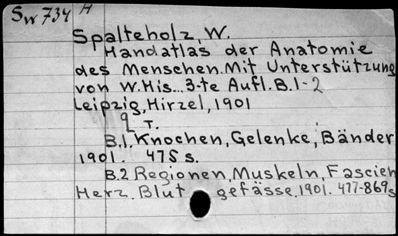 Sw 734 H
Spalteholz, W.
Handatlas der Anatomie
des Menschen. Mit Unterstützung
von W. His... 3-te Aufl. B. 1-2
Leipzig, Hirzel, 1901
2 т.
B.1. Knochen, Gelenke, Bänder
1901. 475 s.
B.2 Regionen, Muskeln, Fascien
Herz. Blutgefässe. 1901. 477-869 s